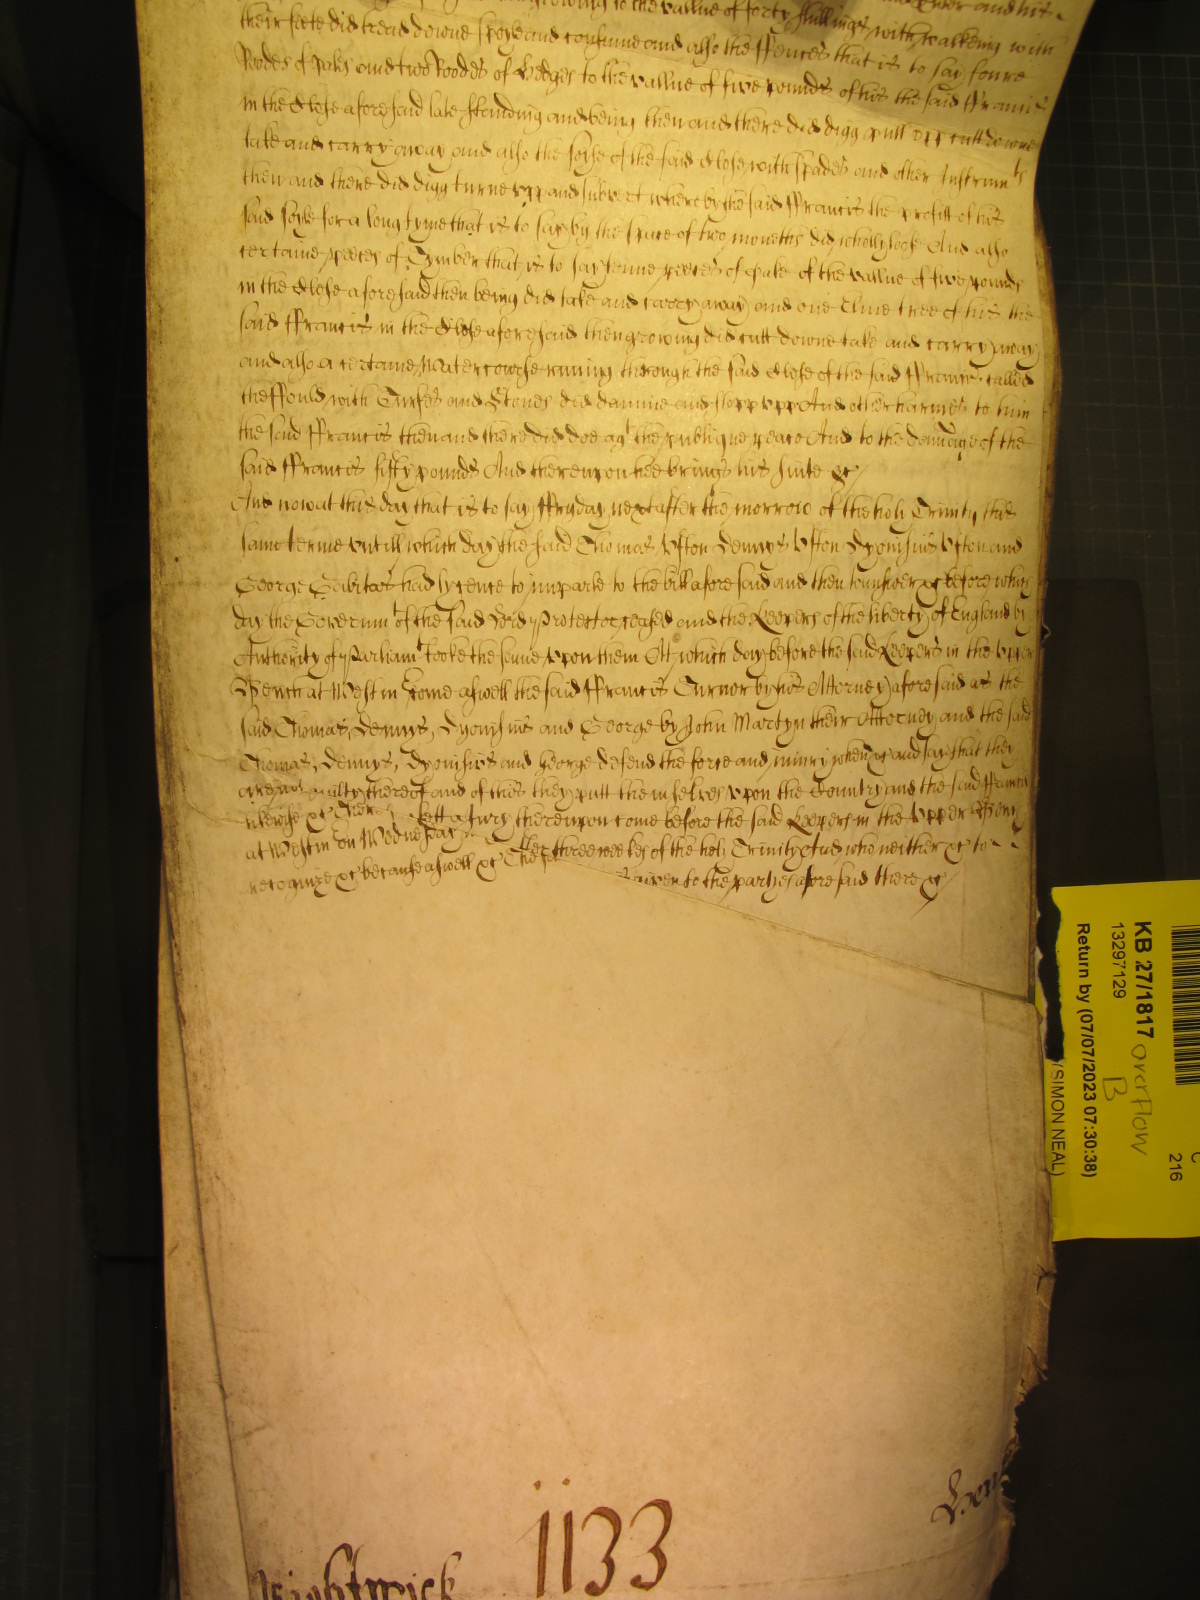 growing to the vallue of forty shillings with walkeing with
their feete did tread downe spoyle and consume and also the ffences that is to say foure
Roodes of pales and two Roodes of Hedges to the vallue of five pounds of his the said ffrancis
in the Close aforesaid late standing and being then and there did digg pull upp cutt downe
take and carry away and also the soyle of the said Close with spades and other Instrumts
then and there did digg turne upp and subvert whereby the said ffrancis the profitt of his
said soyle for a long tyme that is to say by the space of two moneths did wholly loose And also
certaine peeces of Tymber that is to say tenne peeces of pale of the vallue of two pounds
in the Close aforesaid then being did take and carry away and one Elme tree of his the
said ffrancis in the Close aforesaid then growing did cutt downe take and carry away
and also a certaine Watercourse running through the said Close of the said ffrancis called
the ffould with Turfes and Stones did damme and stopp upp And other harmes to him
the said ffrancis then and there did doe agt the publique peace And to the damage of the
said ffrancis fifty pounds And thereupon hee brings his suite &c
And now at this day that is to say ffryday next after the morrow of the holy Trinity this
same terme untill which day the said Thomas Ufton Dennys Ufton Dyonisius Ufton and
George had lycence to imparle to the bill aforesaid and then to answer &c before which
day the Governmt of the said Lord Protector ceased and the Keepers of the liberty of England by
Authority of Parliamt tooke the same upon them Att which day before the said Keepers in the Upper
Bench at Westm come aswell the said ffrancis Turnor by his Attorney aforesaid as the
said Thomas, Dennys, Dyonisius and George by John Martyn their Attorney and the said
Thomas, Dennys, Dyonisius and George defend the force and iniury when &c and say that they
are not guilty thereof and of this they putt themselves upon the Country and the said ffrancis
likewise &c Therefore lett a Jury thereupon come before the said Keepers in the Upper Bench
at Westm on Wednesday after three weekes of the holy Trinity And who neither &c to
recognize &c because aswell &c The given to the partyes aforesaid there &c
1133
KB 27/1817
13297129
Return by (07/07/2023 07:30:38)
(SIMON NEAL)
overflow
B
C
216